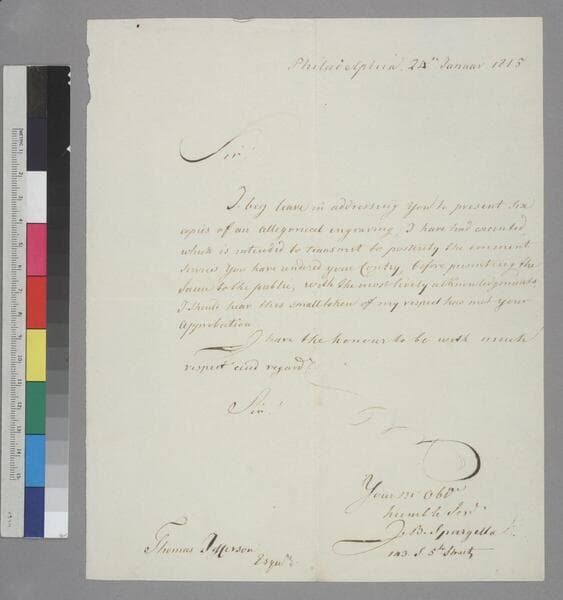 Philadelphia. 24th Januar 1815
Sir!
I beg leave in addressing You to present Six
copies of an allegorical engraving I have had executed
which is intended to transmit to posterity the eminent
Services You have rendred your Contry, before presenting the
same to the public, with the most lively acknowledgments
I should hear this small token of my respect has met Your
Approbation
I have the honour to be with much
respect and regard
Sir!
Your Obt.
humble Servt.
J. B. Spargella
143 S. 5th Street
Thomas Jefferson
Esqu